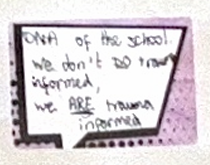 DNA of the school.
we don't DO trauma
informed,
we ARE trauma
informed